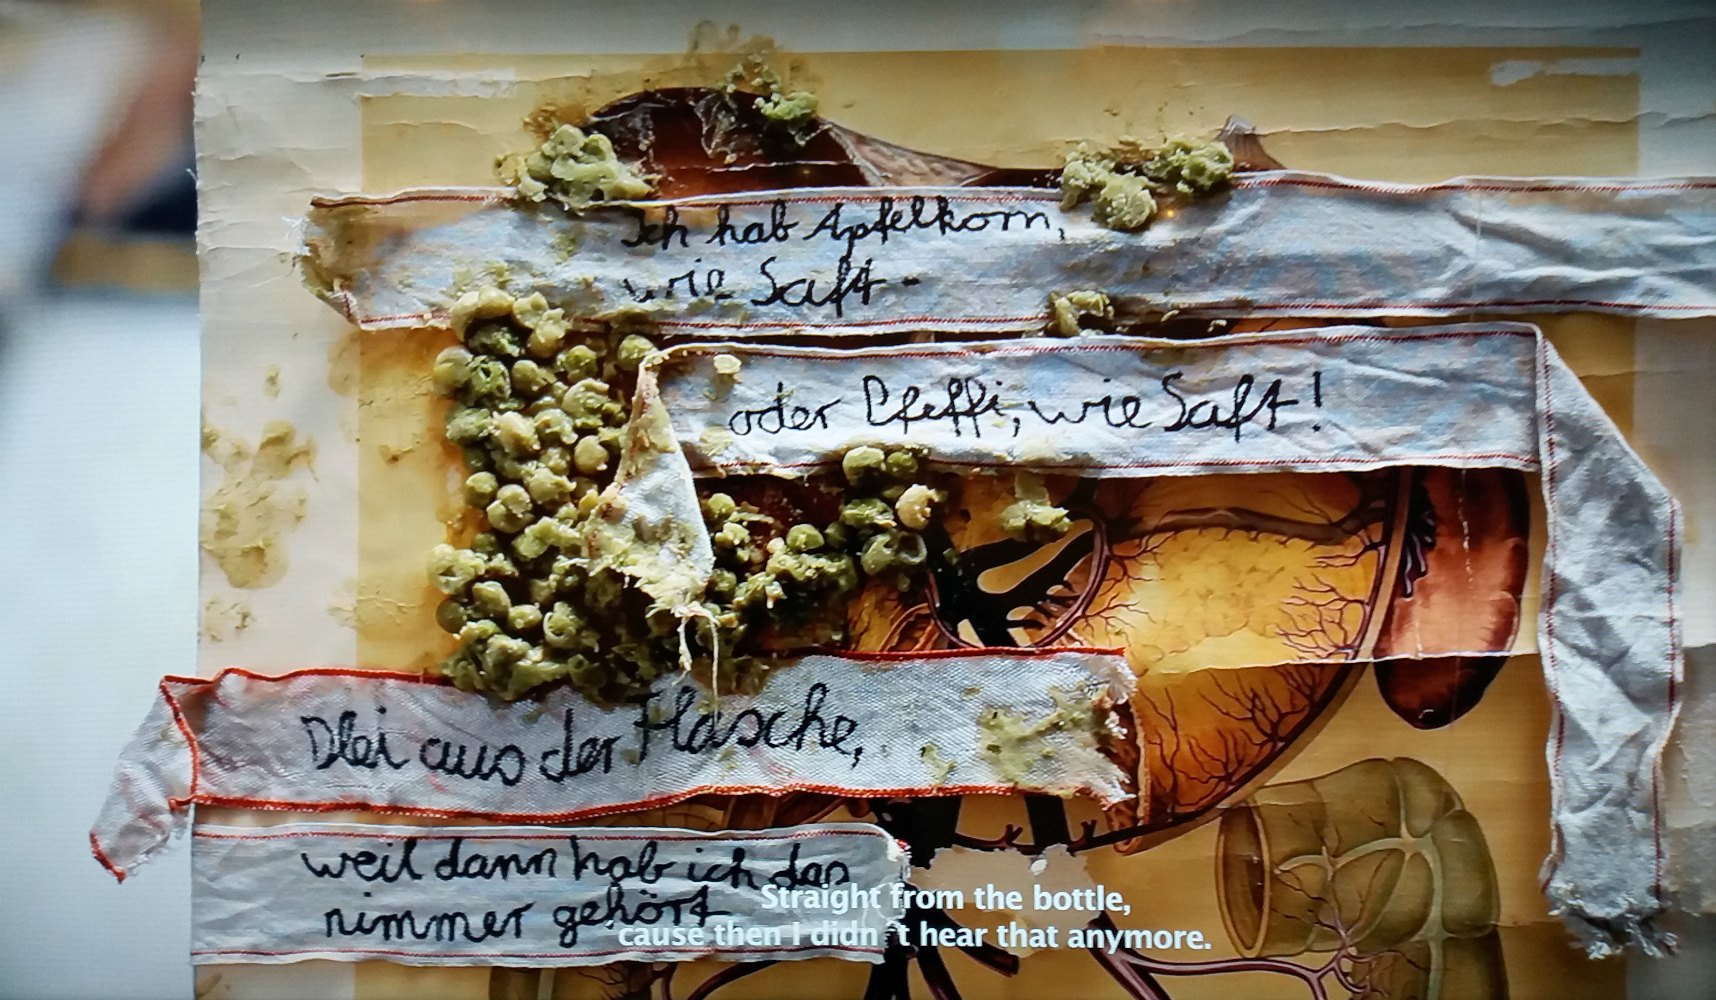 Ich hab Apfelkorn,
wie Saft -
oder Pfeffi, wie Saft!
Dlei aus der Flasche,
weil dann hab ich das
nimmer gehört
Straight from the bottle,
cause then I didn´t hear that anymore.